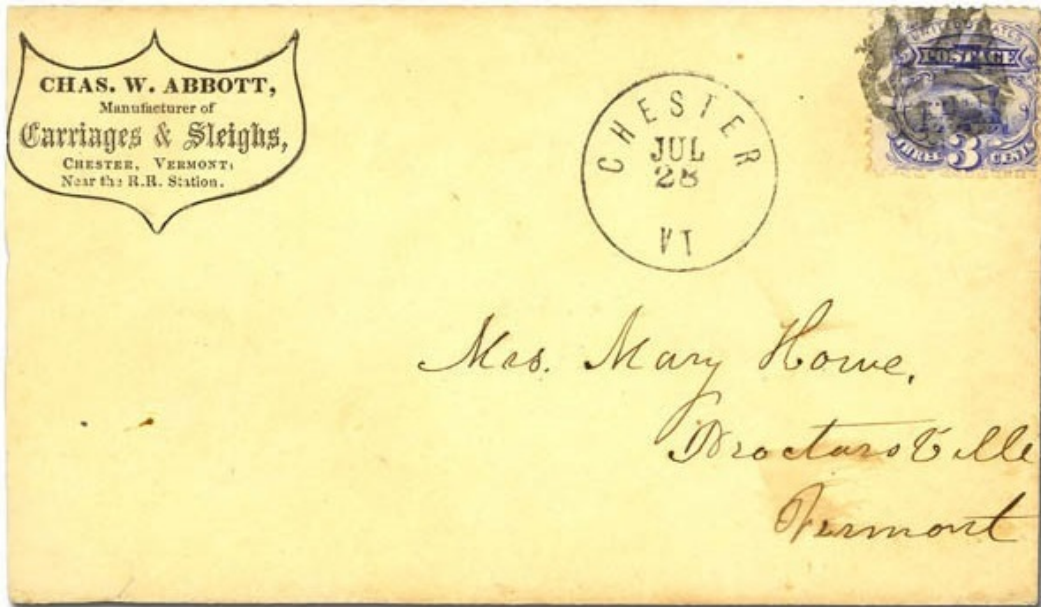 CHAS. W. ABBOTT,
Manufacturer of
Carriages & Sleighs,
CHESTER, VERMONT,
Near the R.R. Station.
CHESTER
JUL
28
VT
UNITED STATES
POSTAGE
THREE 3 CENTS
Mrs. Mary Howe,
Proctorsville
Vermont